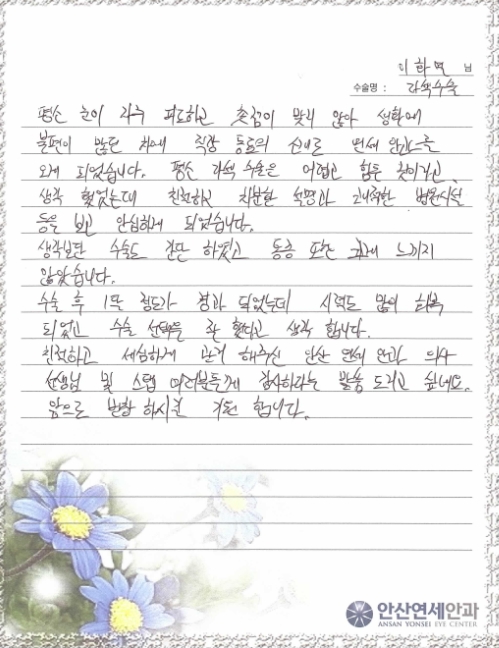 이하연 님
수술명 : 라섹수술
평소 눈이 자주 피로하고 촛점이 맞지 않아 생활에
불편이 많던 차에 직장 동료의 소개로 연세 안과를
오게 되었습니다. 평소 라섹 수술은 어렵고 힘든 것이라고
생각 했었는데 친절하고 차분한 설명과 쾌적한 병원시설
등을 보고 안심하게 되었습니다.
생각보단 수술도 간단 하였고 통증 또한 크게 느끼지
않았습니다.
수술 후 1달 정도가 경과 되었는데 시력도 많이 회복
되었고 수술 선택을 잘 했다고 생각 합니다.
친절하고 세심하게 관리 해주신 안산 연세 안과 의사
선생님 및 스탭 여러분들께 감사하다는 말씀 드리고 싶네요.
앞으로 번창 하시길 기원 합니다.
안산연세안과
ANSAN YONSEI EYE CENTER